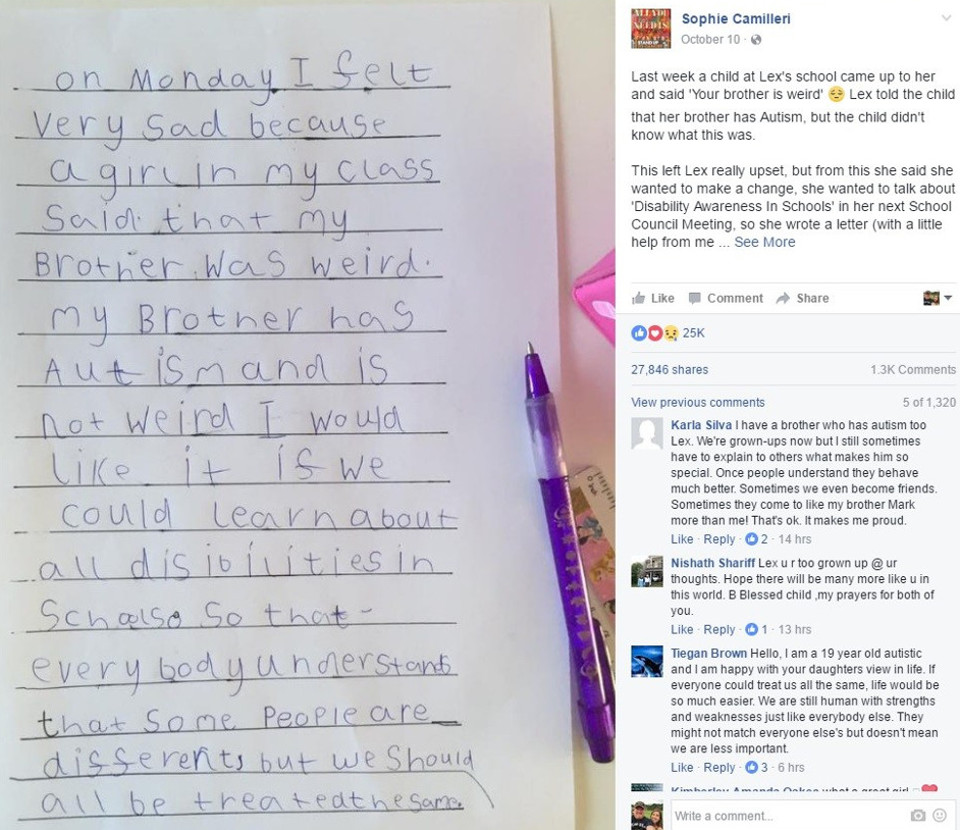 on Monday I felt
Very sad because
a girl in my class
Said that my
Brother was weird.
my Brother has
Autism and is
not weird I would
like it if we
could learn about
all disibilities in
Schools so that
everybody understands
that some People are
differents but we should
all be treated the same.
Sophie Camilleri
October 10 ·
Last week a child at Lex's school came up to her
and said 'Your brother is weird' 😔 Lex told the child
that her brother has Autism, but the child didn't
know what this was.
This left Lex really upset, but from this she said she
wanted to make a change, she wanted to talk about
'Disability Awareness In Schools' in her next School
Council Meeting, so she wrote a letter (with a little
help from me ... See More
Like Comment Share
25K
27,846 shares 1.3K Comments
View previous comments 5 of 1,320
Karla Silva I have a brother who has autism too
Lex. We're grown-ups now but I still sometimes
have to explain to others what makes him so
special. Once people understand they behave
much better. Sometimes we even become friends.
Sometimes they come to like my brother Mark
more than me! That's ok. It makes me proud.
Like · Reply · 2 · 14 hrs
Nishath Shariff Lex u r too grown up @ ur
thoughts. Hope there will be many more like u in
this world. B Blessed child ,my prayers for both of
you.
Like · Reply · 1 · 13 hrs
Tiegan Brown Hello, I am a 19 year old autistic
and I am happy with your daughters view in life. If
everyone could treat us all the same, life would be
so much easier. We are still human with strengths
and weaknesses just like everybody else. They
might not match everyone else's but doesn't mean
we are less important.
Like · Reply · 3 · 6 hrs
Kimberley Amanda Oakes what a great girl
Write a comment...